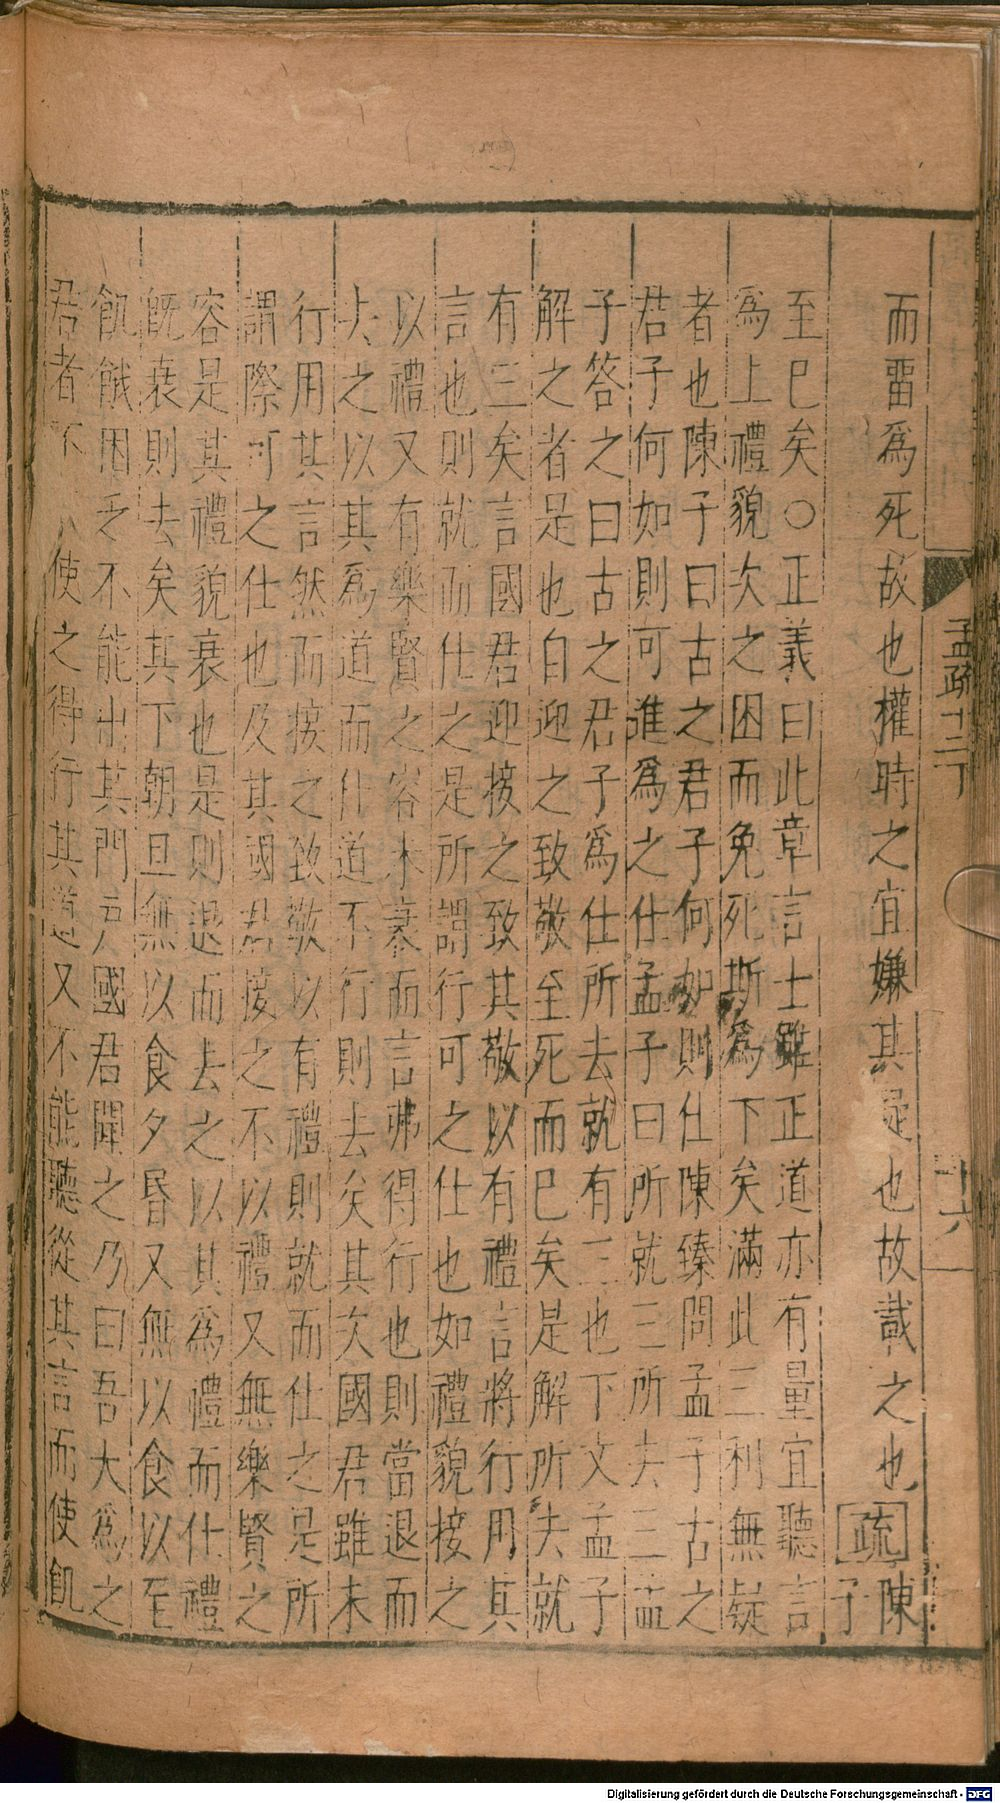 孟疏十二下
十六
而畱爲死故也權時之宜嫌其疑也故載之也疏陳
子
至已矣○正義曰此章言士雖正道亦有量宜聽言
爲上禮貌次之困而免死斯爲下矣滿此三利無疑
者也陳子曰古之君子何如則仕陳臻問孟子古之
君子何如則可進爲之仕孟子曰所就三所去三孟
子答之曰古之君子爲仕所去就有三也下文孟子
解之者是也自迎之致敬至死而已矣是解所去就
有三矣言國君迎接之致其敬以有禮言將行用其
言也則就而仕之是所謂行可之仕也如禮貌接之
以禮又有樂賢之容未衰而言弗得行也則當退而
去之以其爲道而仕道不行則去矣其次國君雖未
行用其言然而接之致敬以有禮則就而仕之是所
謂際可之仕也及其國君接之不以禮又無樂賢之
容是其禮貌衰也是則退而去之以其爲禮而仕禮
旣衰則去矣其下朝旦無以食夕昬又無以食以至
飢餓困乏不能出其門戶國君聞之乃曰吾大爲之
君者不 使之得行其道又不能聽從其言而使飢
Digitalisierung gefördert durch die Deutsche Forschungsgemeinschaft - DFG